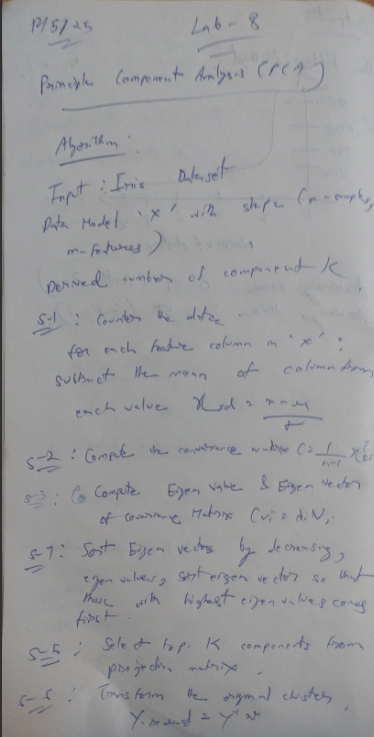 Lab - 8
Principle Component Analysis (PCA)
Algorithm :
Input : Iris Dataset
Data Model 'X' with shape (n-samples,
m-features)
number of component K
S-1 : the data
for each feature column in 'X' :
subtract the mean of column from
each value
S-2 : Compute the covariance matrix C =
S-3 : Compute Eigen value & Eigen vector
of Covariance Matrix
Sort Eigen vectors by decreasing
eigen values, sort eigen vectors so that
with highest eigen values comes
first.
S-5 : Select top K components from
projection matrix.
Transform the original